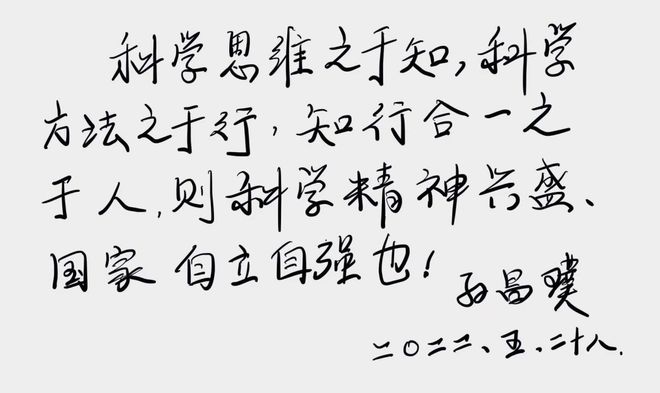 科学思维之于知,科学
方法之于行,知行合一之
于人,则科学精神兴盛、
国家自立自强也!
孙昌璞
二〇二二、五、二十八.